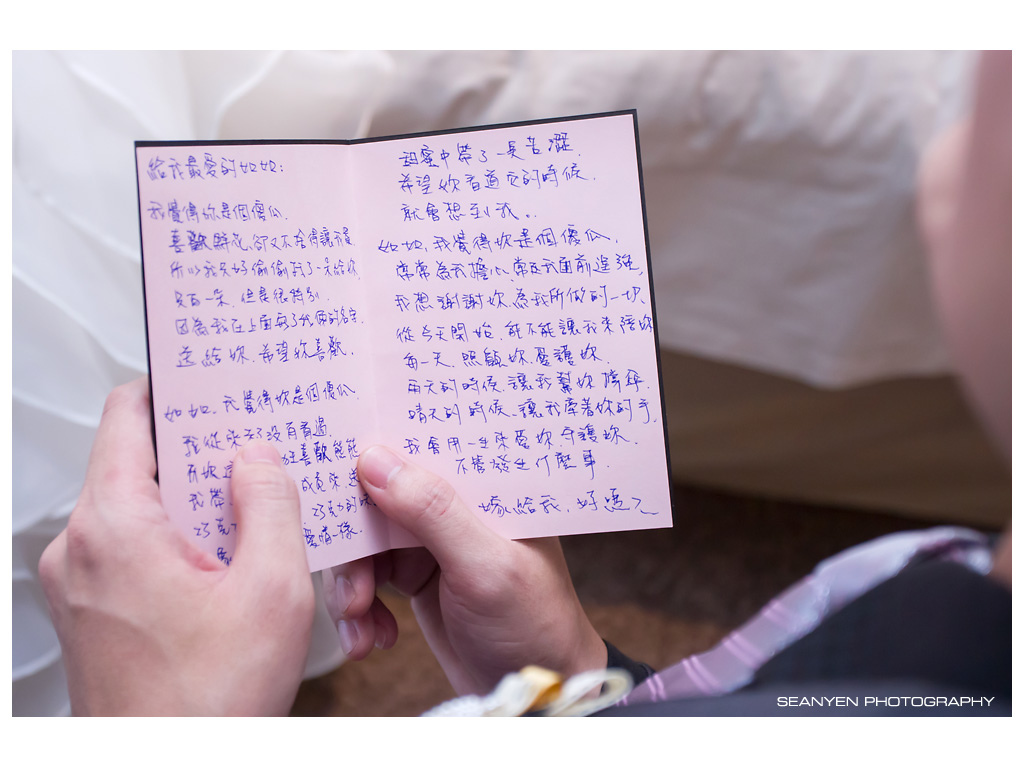 給我最愛的如如：
我覺得妳是個傻瓜.
喜歡鮮花、卻又不捨得讓我買
所以我只好偷偷 了一朵給妳.
只有一朵. 但是很特別.
因為我在上面 了我們的名字.
送給妳. 希望妳喜歡.
如如. 我覺得妳是個傻瓜.
我從來 沒有看過.
有妳 喜歡熊熊
我帶
巧克力的
巧克 愛情一樣.
甜蜜中帶了一 苦澀.
希望妳看 它的時候.
就會想到我..
如如, 我覺得妳是個傻瓜.
常常為我擔心. 常在我面前逞強.
我想謝謝妳. 為我所做的一切.
從今天開始. 能不能讓我來陪妳
每一天. 照顧妳. 愛護妳.
雨天的時候. 讓我幫妳撐傘.
晴天的時候. 讓我牽著妳的手.
我會用一生來愛妳. 守護妳.
不管發生什麼事.
嫁給我. 好嗎?
SEANYEN PHOTOGRAPHY